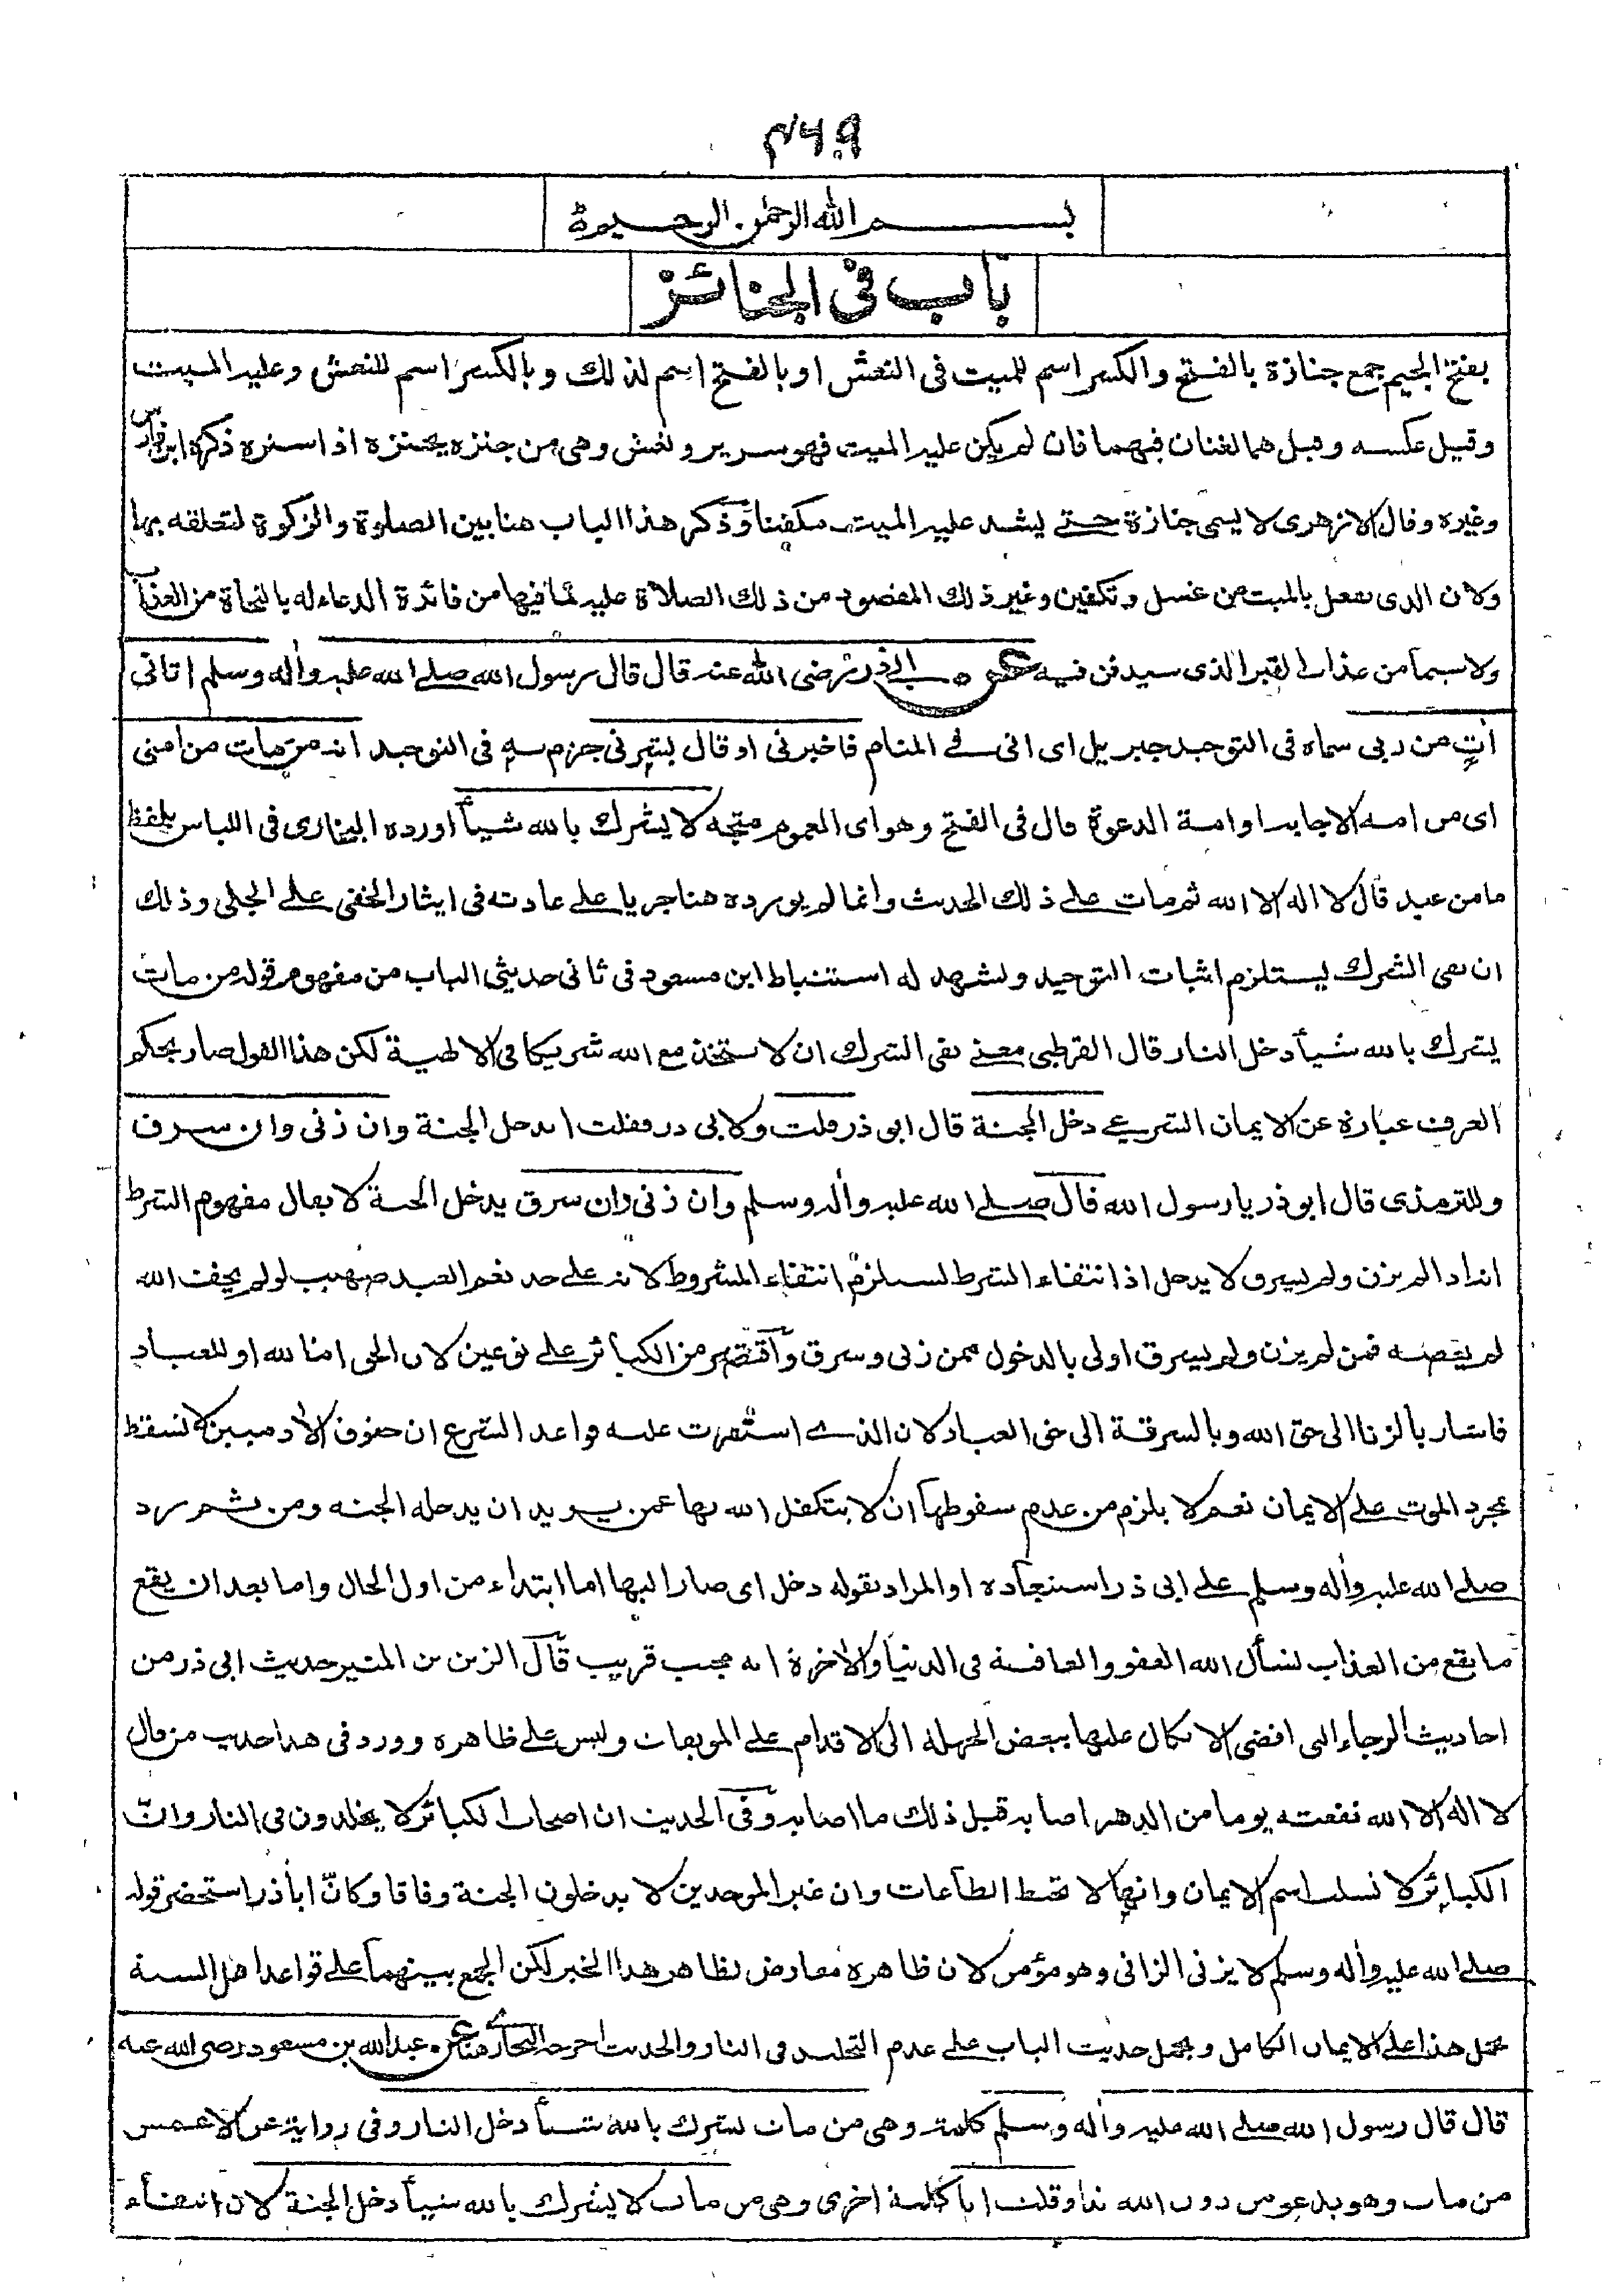 ۴۶۹
بسم الله الرحمن الرحيم
باب في الجنائز
بفتح الجيم جمع جنازة بالفتح والكسر اسم للميت فى النعش او بالفتح اسم لذلك وبالكسر اسم للنعش وعليه الميت
وقيل عكسه وقيل هما لغتان فيهما فان لم يكن عليه الميت فهو سرير ونعش وهى من جنزه يجنزه اذا ستره ذكره ابن فارس
وغيره وقال الازهرى لا يسمى جنازة حتے يشد عليه الميت مكفنا وذكر هذا الباب هنا بين الصلوة والزكوة لتعلقه بها
ولان الذى يفعل بالميت من غسل وتكفين وغير ذلك المقصود من ذلك الصلاة عليه لما فيها من فائدة الدعاء له بالنجاة من العذاب
ولا سيما من عذاب القبر الذى سيدفن فيه عن ابي ذر رضى الله عنه قال قال رسول الله صلے الله عليه واله وسلم اتانى
ات من ربى سماه فى التوحيد جبريل اى انى فے المنام فاخبرنى او قال بشرنى جزم به فى التوحيد انه من مات من امتى
اى من امة الاجابة او امة الدعوة قال فى الفتح وهو اى العموم متجه لا يشرك بالله شيأ اورده البخارى فى اللباس بلفظ
ما من عبد قال لا اله الا الله ثم مات علے ذلك الحديث وانما لم يورده هنا جريا علے عادته فى ايثار الخفى علے الجلى وذلك
ان نفى الشرك يستلزم اثبات التوحيد ويشهد له استنباط ابن مسعود فى ثانى حديثى الباب من مفهوم قوله من مات
يشرك بالله شيأ دخل النار قال القرطبى معنے نفى الشرك ان لا يتخذ مع الله شريكا فى الالهية لكن هذا القول صار بحكم
العرف عبارة عن الايمان الشرعے دخل الجنة قال ابو ذر قلت ولابى ذر فقلت ايدخل الجنة وان زنى وان سرق
وللترمذى قال ابو ذر يا رسول الله قال صلے الله عليه واله وسلم وان زنى وان سرق يدخل الجنة لا يقال مفهوم الشرط
انه اذا لم يزن ولم يسرق لا يدخل اذ انتفاء الشرط يستلزم انتفاء المشروط لانه علے حد نعم العبد صهيب لو لم يخف الله
لم يعصه فمن لم يزن ولم يسرق اولى بالدخول ممن زنى وسرق واقتصر من الكبائر علے نوعين لان الحق اما لله او للعباد
فاشار بالزنا الى حق الله وبالسرقة الى حق العباد لان الذے استقرت عليه قواعد الشرع ان حقوق الادميين لا تسقط
بمجرد الموت علے الايمان نعم لا يلزم من عدم سقوطها ان لا يتكفل الله بها عمن يريد ان يدخله الجنه ومن ثم رد
صلے الله عليه واله وسلم علے ابى ذر استبعاده او المراد بقوله دخل اى صار اليها اما ابتداء من اول الحال واما بعد ان يقع
ما يقع من العذاب نسأل الله العفو والعافية فى الدنيا والاخرة انه مجيب قريب قال الزين بن المنير حديث ابى ذر من
احاديث الرجاء التى افضى الاتكال عليها ببعض الجهلة الى الاقدام علے الموبقات وليس علے ظاهره وورد فى هذا حديث من قال
لا اله الا الله نفعته يوما من الدهر اصابه قبل ذلك ما اصابه وفى الحديث ان اصحاب الكبائر لا يخلدون فى النار وانّ
الكبائر لا تسلب اسم الايمان وانها لا تحبط الطاعات وان غير الموحدين لا يدخلون الجنة وفاقا وكانّ ابا ذر استحضر قوله
صلے الله عليه واله وسلم لا يزنى الزانى وهو مؤمن لان ظاهره معارض لظاهر هذا الخبر لكن الجمع بينهما علے قواعد اهل السنة
بحمل هذا علے الايمان الكامل وبحمل حديث الباب علے عدم التخليد فى النار والحديث اخرجه البخارے عن عبد الله بن مسعود رضى الله عنه
قال قال رسول الله صلے الله عليه واله وسلم كلمة وهى من مات يشرك بالله شيأ دخل النار وفى رواية عن الاعمش
من مات وهو يدعو من دون الله ندا وقلت انا كلمة اخرى وهى من مات لا يشرك بالله شيأ دخل الجنة لان انتفاء